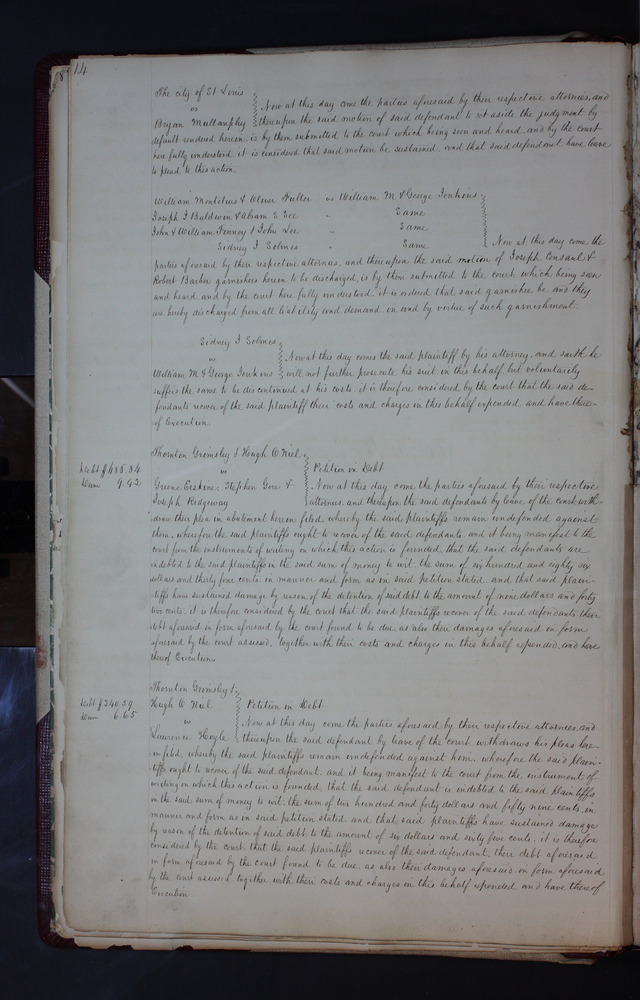 14
The city of St Louis
vs
Bryan Mullanphy
Now at this day come the parties aforesaid by their respective attornies, and
thereupon the said motion of said defendant to set aside the judgment by
default rendered herein is by them submitted to the court which being seen and heard and by the court
here fully understood it is considered that said motion be sustained and that said defendant have leave
to plead to this action.
William Montelius & Fuller vs William M & George Jenkins
Joseph J Baldwin & Abram S See " Same
John & William Finney & John Lee " Same
Sidney J Solmes " Same
Now at this day come the
parties aforesaid by their respective attornies, and thereupon the said motion of Joseph Consaul &
Robert Barber garnishees herein to be discharged, is by them submitted to the court which being seen
and heard and by the court here fully understood it is ordered that said garnishee be and they
are hereby discharged from all liability and demand in and by virtue of such garnishment.
Sidney J Solmes
vs
William M & George Jenkins
Now at this day comes the said plaintiff by his attorney, and saith he
will not further prosecute his suit in this behalf but voluntarily
suffers the same to be discontinued at his costs. it is therefore considered by the court that the said de-
fendants recover of the said plaintiff their costs and charges in this behalf expended and have there-
of Execution.
Thornton Grimsley & Hugh O Neil
vs
Greene Erskine, Stephen Gore &
Joseph Ridgeway
Debt $686.34
Dam 9.42
Petition in Debt
Now at this day come the parties aforesaid by their respective
attornies. and thereupon the said defendants by leave of the court with-
draw their plea in abatement herein filed, whereby the said plaintiffs remain undefended against
them, wherefore the said plaintiffs ought to recover of the said defendants and it being manifest to the
court from the instruments of writing on which this action is founded, that the said defendants are
indebted to the said plaintiffs in the said sum of money to wit. the sum of six hundred and eighty six
dollars and thirty four cents in manner and form as in said petition stated. and that said plain-
tiffs have sustained damage by reason of the detention of said debt to the amount of nine dollars and forty
two cents. it is therefore considered by the court that the said plaintiffs recover of the said defendants their
debt aforesaid in form aforesaid by the court found to be due as also their damages aforesaid in form
aforesaid by the court assessed, together with their costs and charges in this behalf expended, and have
thereof Execution.
Thornton Grimsley &
Hugh O Neil
vs
Lawrence Hoyle
Debt $240.59
Dam 6.65
Petition in Debt
Now at this day come the parties aforesaid by their respective attornies, and
thereupon the said defendant by leave of the court withdraws his pleas here-
in filed, whereby the said plaintiffs remain undefended against him. wherefore the said plain-
tiffs ought to recover of the said defendant. and it being manifest to the court from the instrument of
writing on which this action is founded, that the said defendant is indebted to the said plaintiffs
in the said sum of money to wit. the sum of two hundred and forty dollars and fifty nine cents. in
manner and form as in said petition stated and that said plaintiffs have sustained damage
by reason of the detention of said debt to the amount of six dollars and sixty five cents. it is therefore
considered by the court that the said plaintiffs recover of the said defendant, their debt aforesaid
in form aforesaid by the court found to be due, as also their damages aforesaid in form aforesaid
by the court assessed together with their costs and charges in this behalf expended and have thereof
Execution